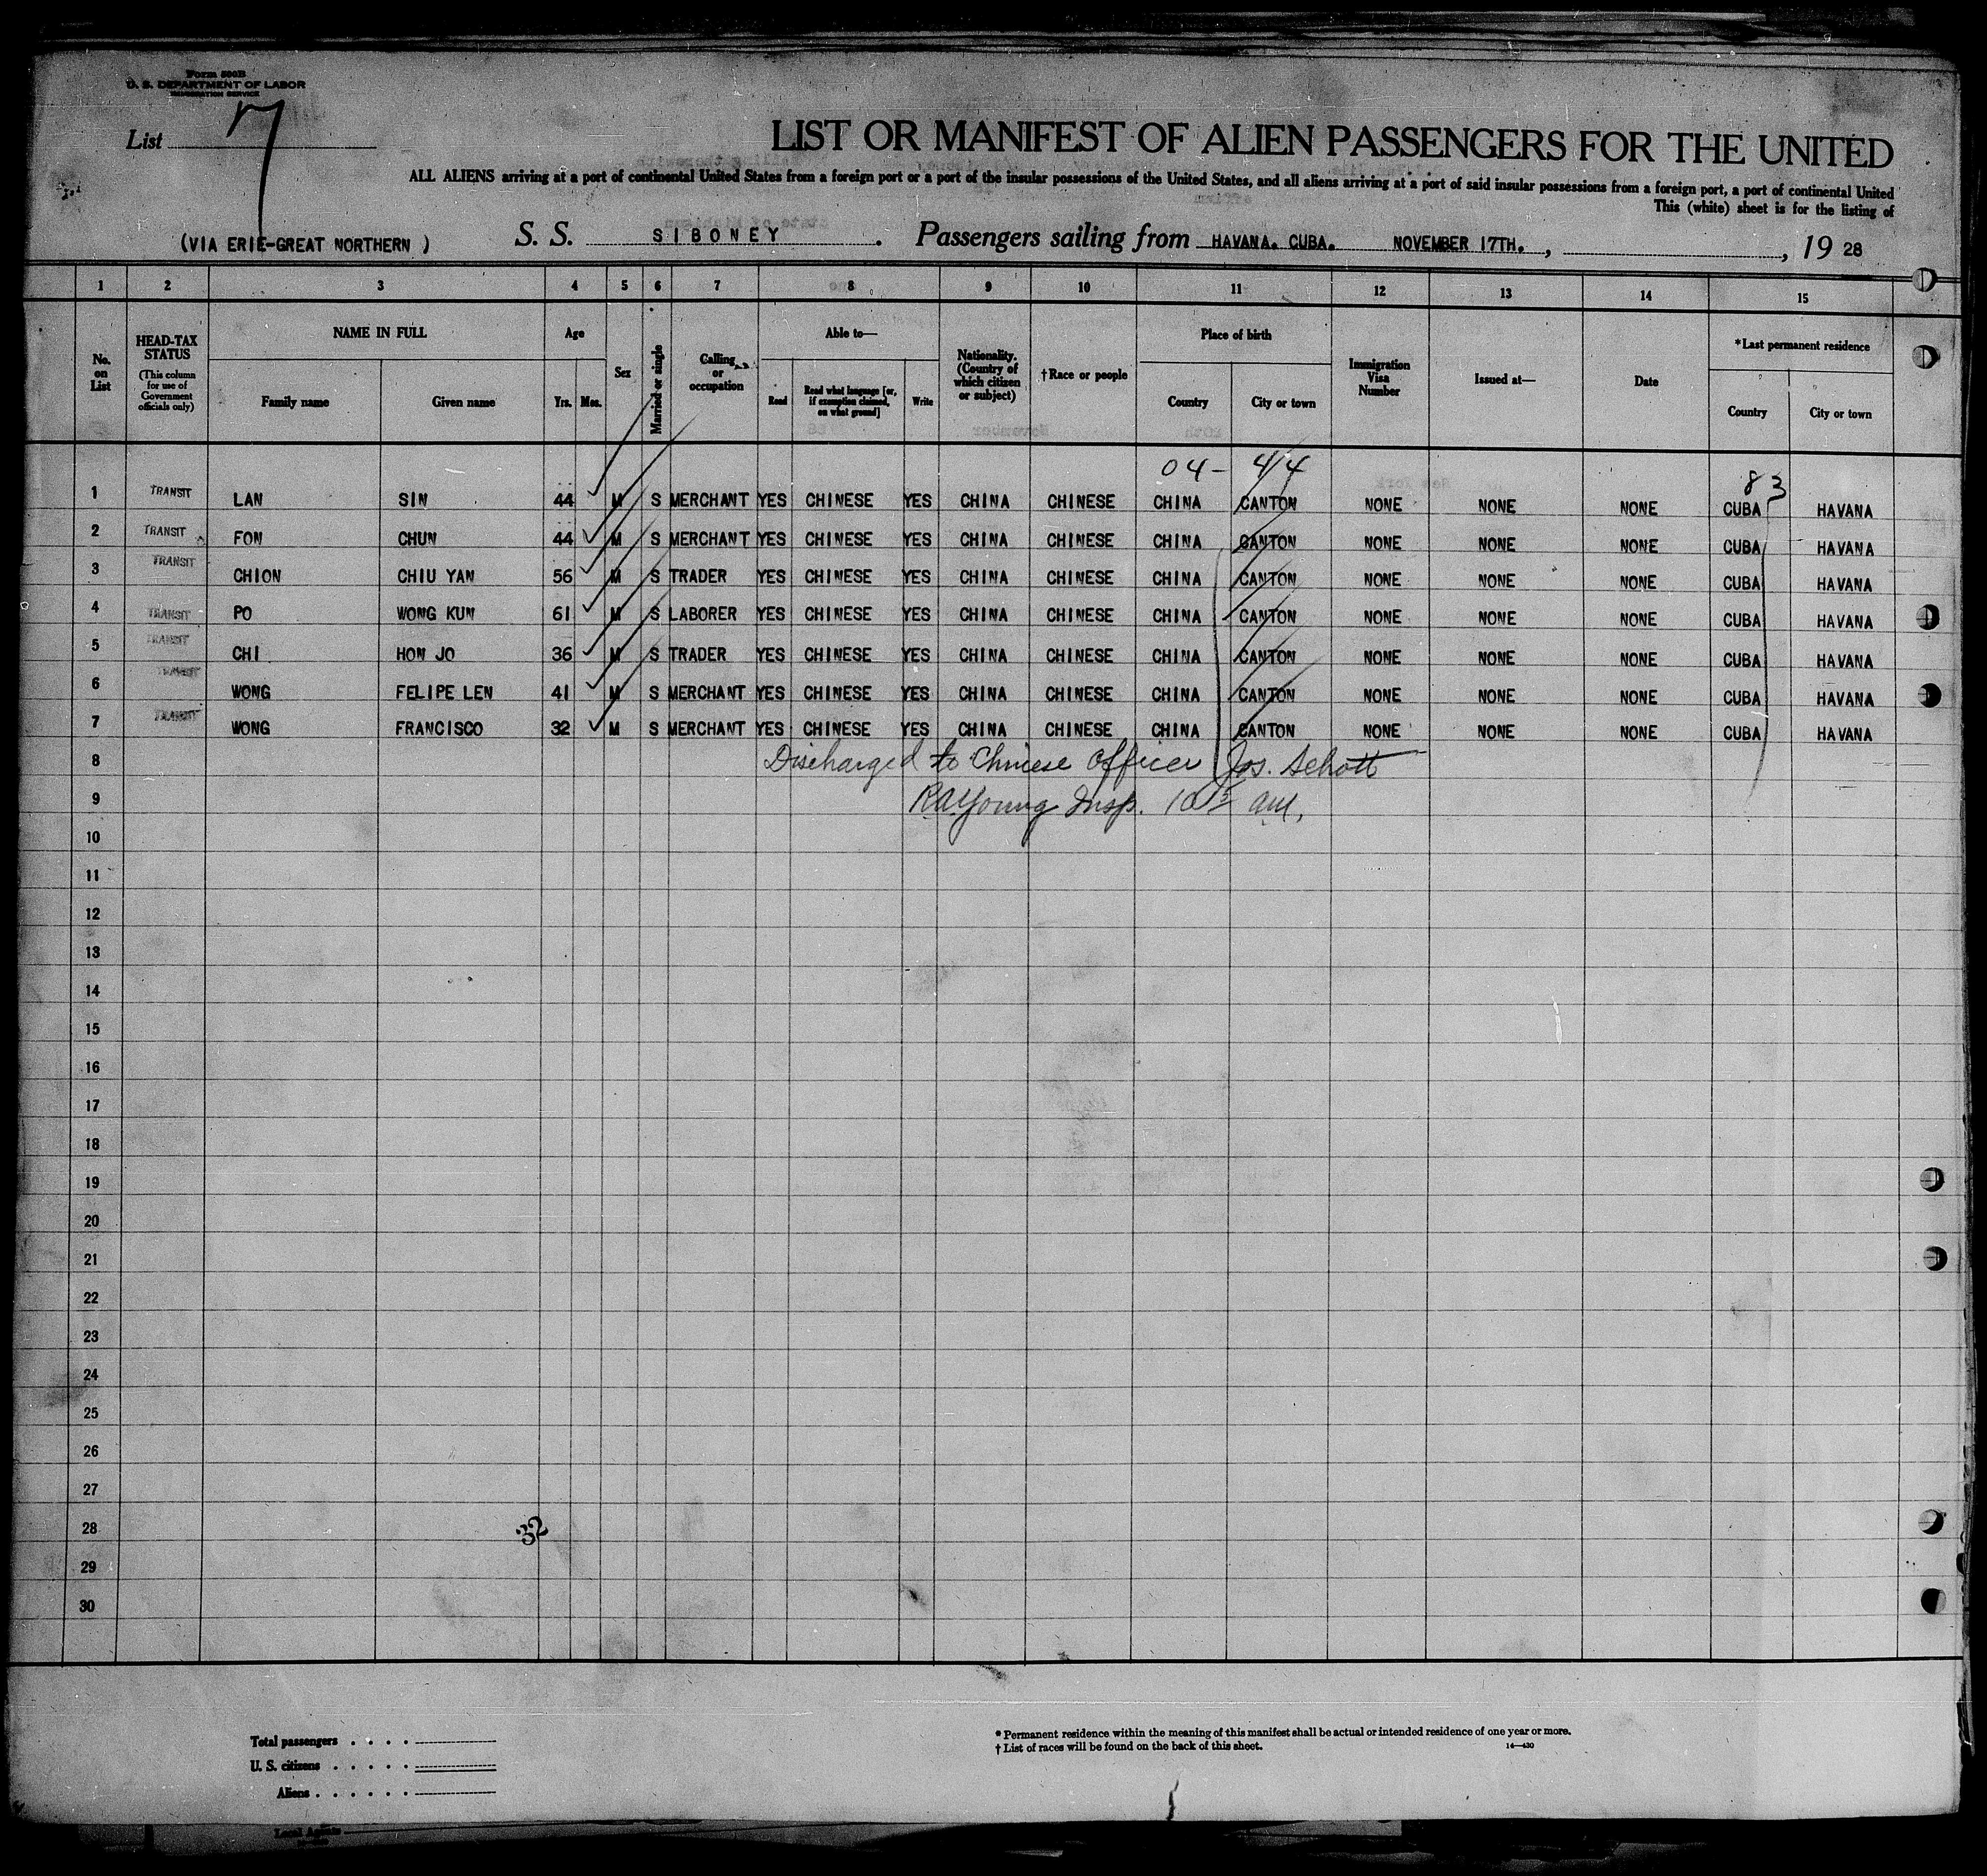 Form 500B
U. S. DEPARTMENT OF LABOR
IMMIGRATION SERVICE
List 7
LIST OR MANIFEST OF ALIEN PASSENGERS FOR THE UNITED
ALL ALIENS arriving at a port of continental United States from a foreign port or a port of the insular possessions of the United States, and all aliens arriving at a port of said insular possessions from a foreign port, a port of continental United
This (white) sheet is for the listing of
(VIA ERIE-GREAT NORTHERN ) S. S. SIBONEY . Passengers sailing from HAVANA. CUBA. NOVEMBER 17TH. , , 19 28
1 2 3 4 5 6 7 8 9 10 11 12 13 14 15
No. on List
HEAD-TAX STATUS (This column for use of Government officials only)
NAME IN FULL
Family name Given name
Age
Yrs. Mos.
Sex
Married or single
Calling or occupation
Able to—
Read Read what language [or, if exemption claimed, on what ground] Write
Nationality. (Country of which citizen or subject)
†Race or people
Place of birth
Country City or town
Immigration Visa Number
Issued at—
Date
*Last permanent residence
Country City or town
04- 414 83
1 TRANSIT LAN SIN 44 M S MERCHANT YES CHINESE YES CHINA CHINESE CHINA CANTON NONE NONE NONE CUBA HAVANA
2 TRANSIT FON CHUN 44 M S MERCHANT YES CHINESE YES CHINA CHINESE CHINA CANTON NONE NONE NONE CUBA HAVANA
3 TRANSIT CHION CHIU YAN 56 M S TRADER YES CHINESE YES CHINA CHINESE CHINA CANTON NONE NONE NONE CUBA HAVANA
4 TRANSIT PO WONG KUN 61 M S LABORER YES CHINESE YES CHINA CHINESE CHINA CANTON NONE NONE NONE CUBA HAVANA
5 TRANSIT CHI HON JO 36 M S TRADER YES CHINESE YES CHINA CHINESE CHINA CANTON NONE NONE NONE CUBA HAVANA
6 TRANSIT WONG FELIPE LEN 41 M S MERCHANT YES CHINESE YES CHINA CHINESE CHINA CANTON NONE NONE NONE CUBA HAVANA
7 TRANSIT WONG FRANCISCO 32 M S MERCHANT YES CHINESE YES CHINA CHINESE CHINA CANTON NONE NONE NONE CUBA HAVANA
8 Discharged to Chinese Officer Jos. Schott
9 RAYoung Insp. am.
10
11
12
13
14
15
16
17
18
19
20
21
22
23
24
25
26
27
28 32
29
30
Total passengers . . . .
U. S. citizens . . . . .
Aliens . . . . . .
* Permanent residence within the meaning of this manifest shall be actual or intended residence of one year or more.
† List of races will be found on the back of this sheet. 14—430